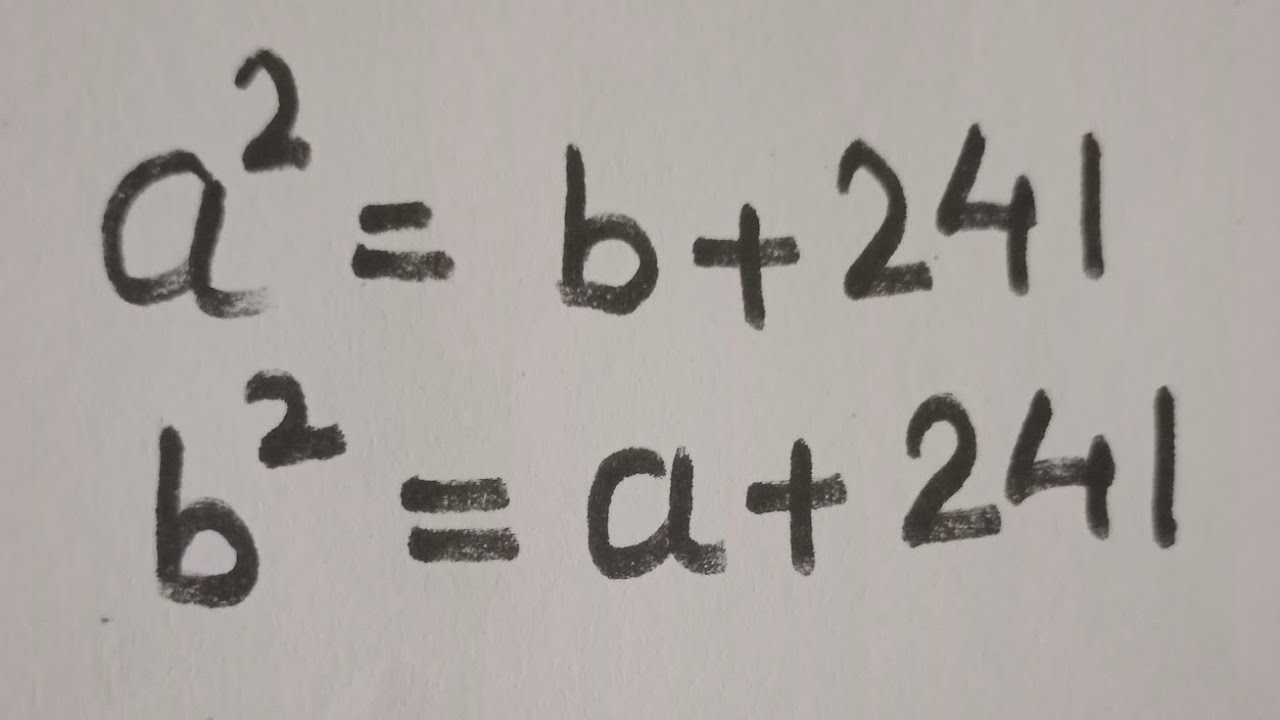 a² = b + 241
b² = a + 241